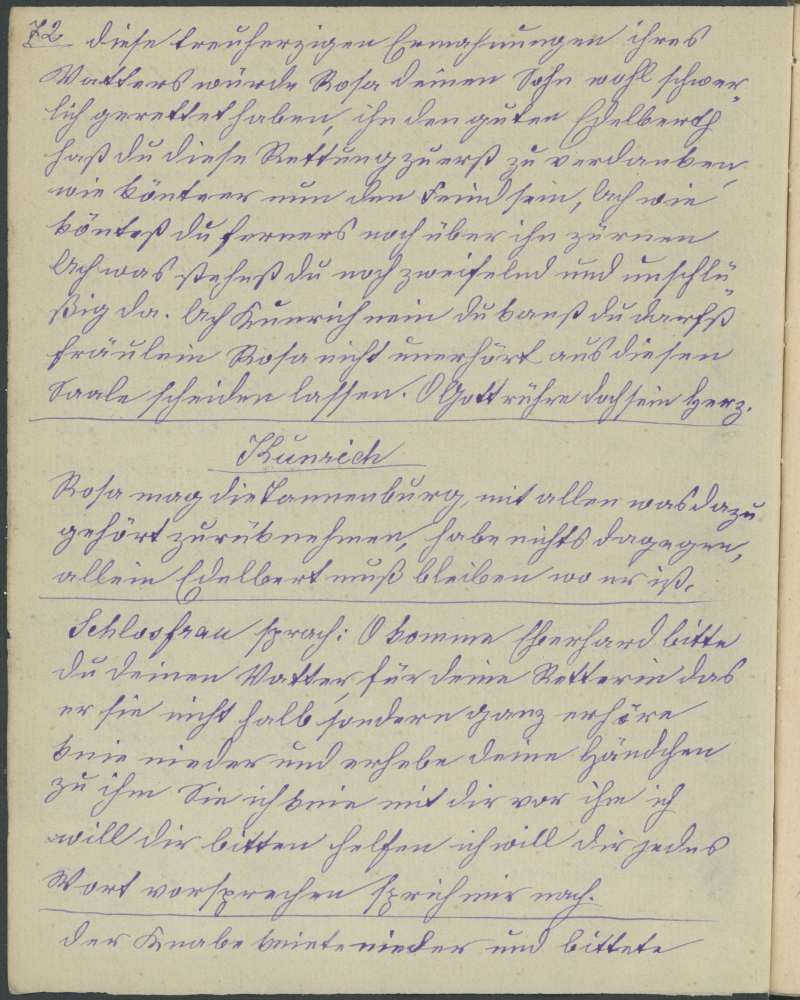 72 diese treuherzigen Ermahnungen ihres
Vatters würde Rosa deinen Sohn wohl schwer
lich gerettet haben, ihn den guten Edelberth
hast du diese Rettung zuerst zu verdanken,
wie könte er nun dein Feind sein, Ach wie
köntest du ferners noch über ihn zürnen
Ach was stehest du noch zweifelnd und unschlü
ßig da. Ach Kunrich nein du kanst du darfst
Fräulein Rosa nicht unerhört aus diesen
Saale scheiden lassen. O Gott rühre doch sein Herz.
Kunrich
Rosa mag die Tannenburg, mit allen was dazu
gehört zurük nehmen, habe nichts dagegen,
allein Edelbert muß bleiben wo er ist.
Schlosfrau sprach: O komme Eberhard bitte
du deinen Vatter, für deine Retterin das
er sie nicht halb sondern ganz erhöre
knie nieder und erhebe deine Händchen
zu ihm Sie ich knie mit dir vor ihm ich
will dir bitten helfen ich will dir jedes
Wort vorsprechen sprich mir nach.
der Knabe kniete nieder und bittete